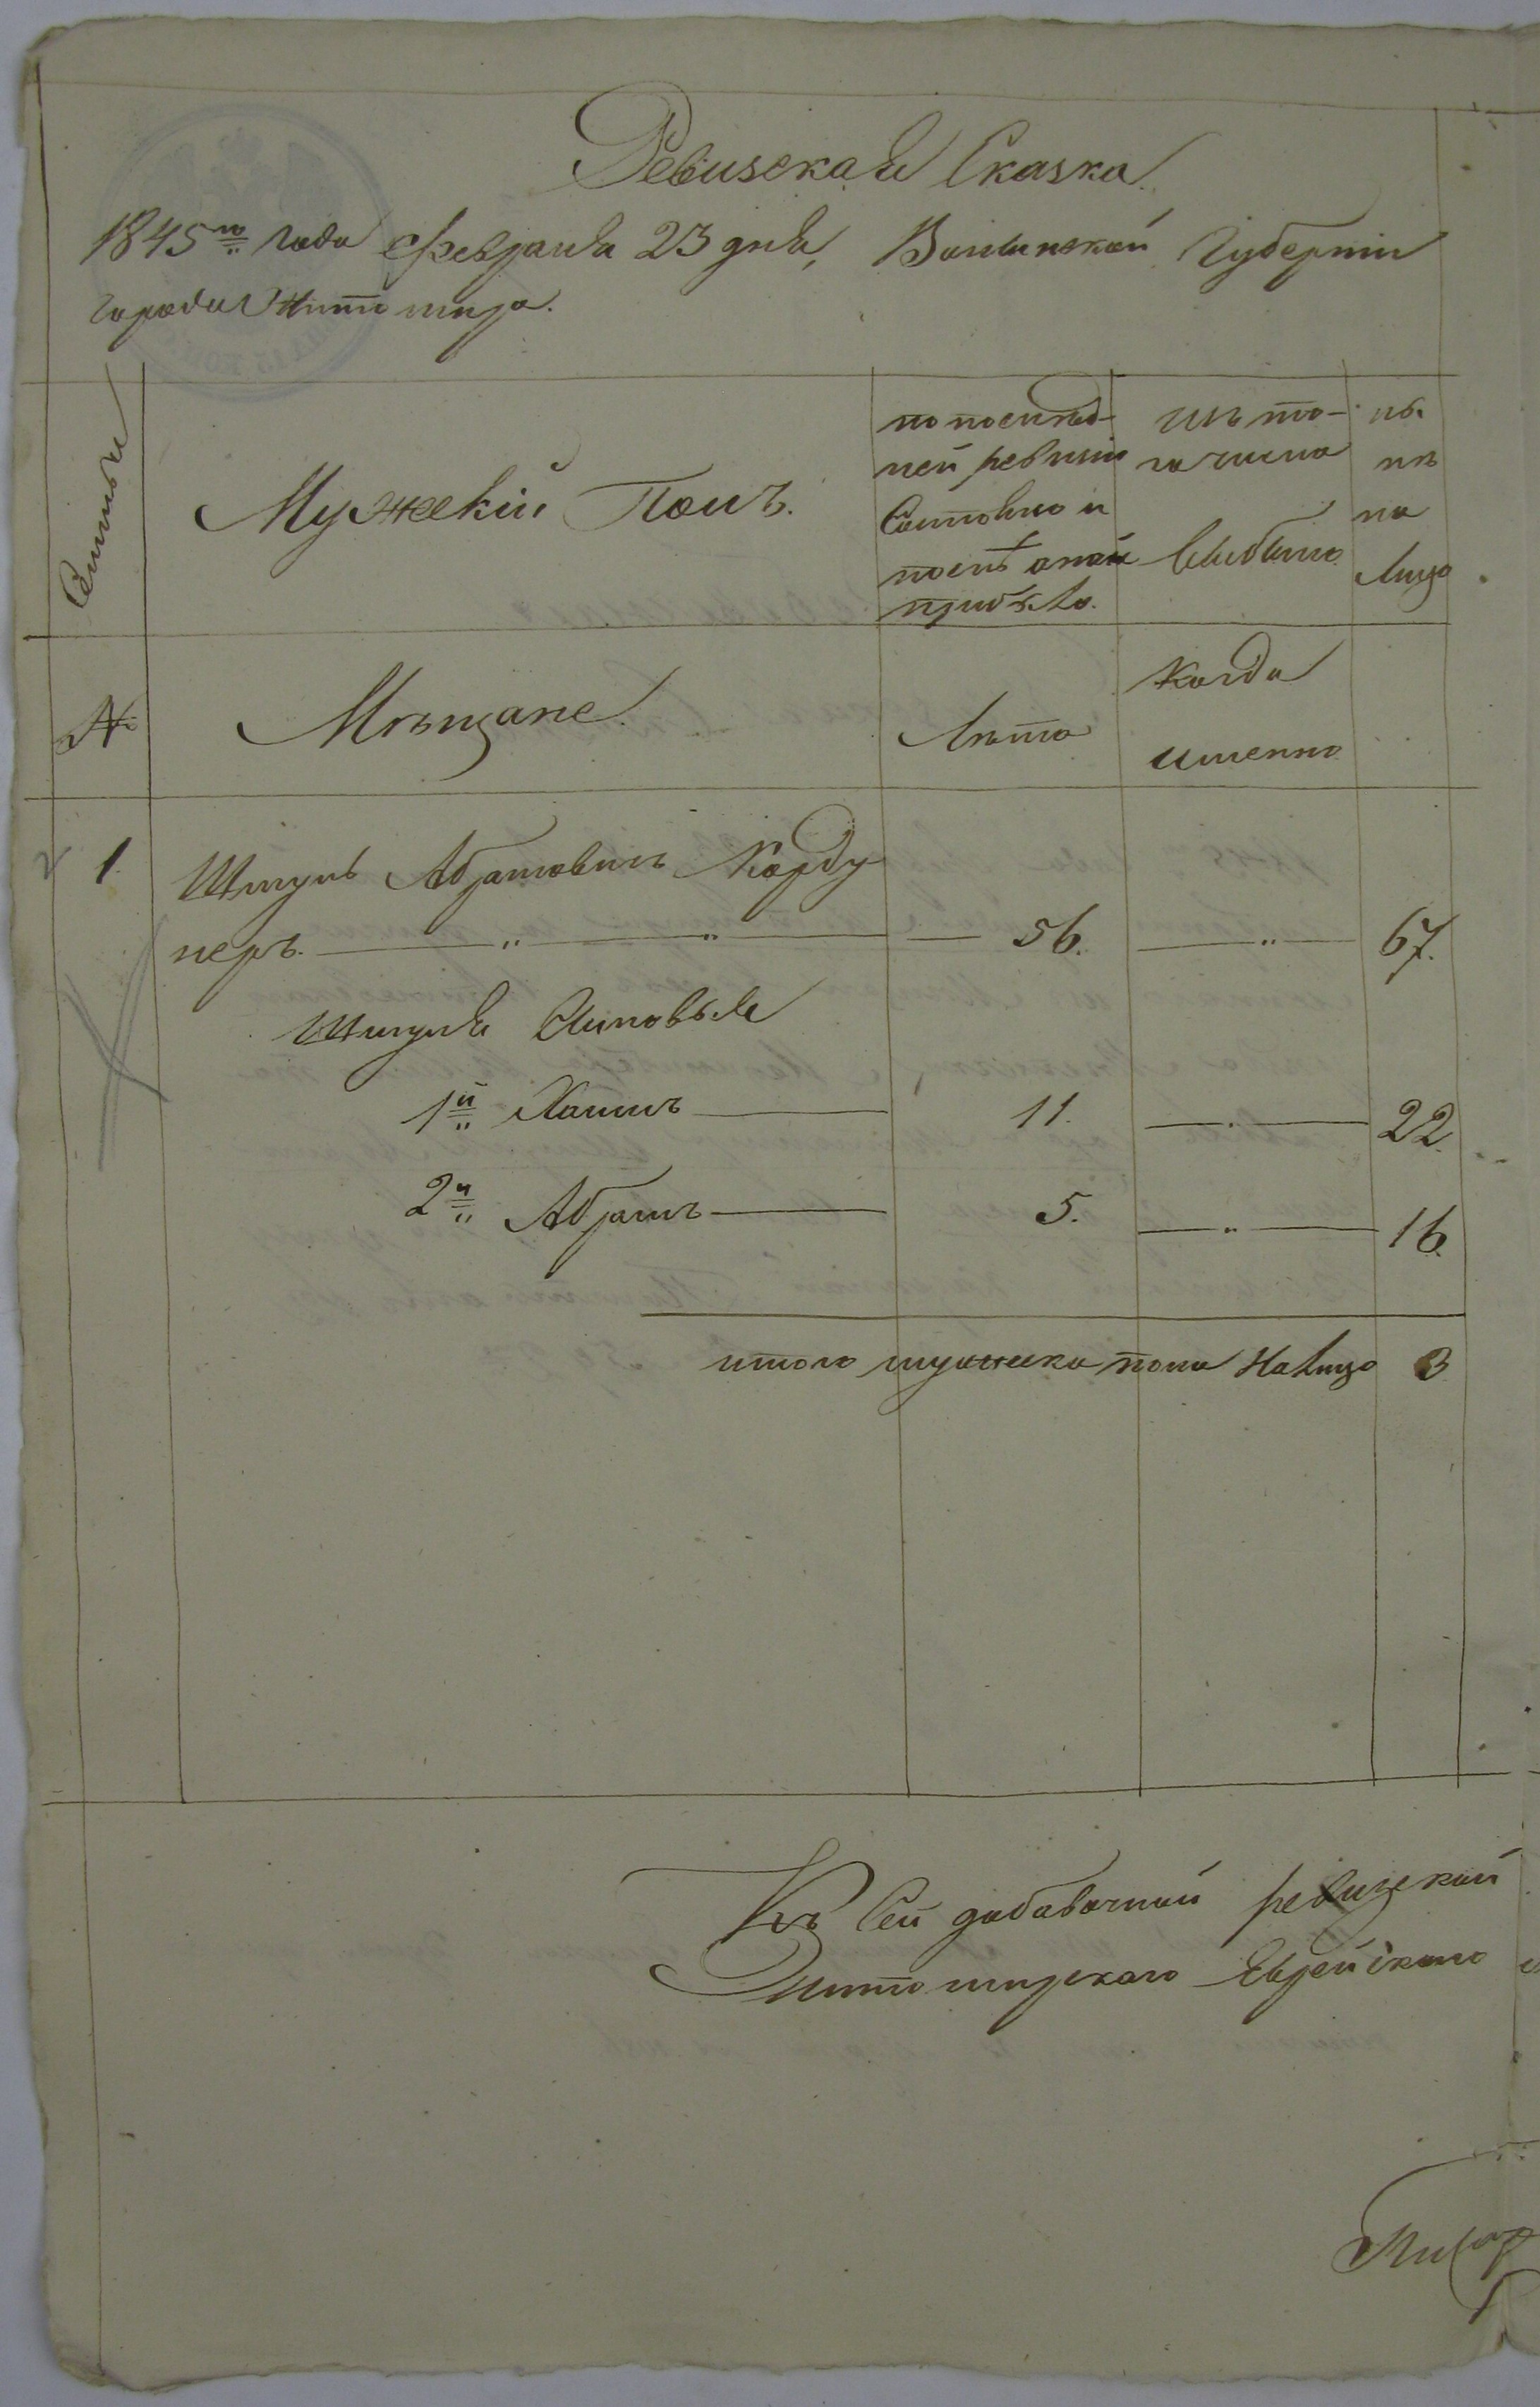 Ревизская Сказка
1845го года Февраля 23 дня, Волынской Губернии
города Житомира.
Семьи
Мужескій Полъ.
по послѣд-
ней ревизіи
Состояло и
послѣ оной
прибыло.
изъ то-
го числа
выбыло
нѣ
нѣ
на
лицо
№
Мѣщане
Лѣта
Когда
именно
1. Шмуль Абрамовичъ Корду
неръ. — „ — „ — 56. — „ — 67.
Шмуля Сыновья
1й Хаимъ — 11. — „ — 22.
2й Абрамъ — 5. — „ — 16.
итого мужеска пола На лицо 3
Къ Сей добавочной ревизской
Житомирскаго Еврейскаго